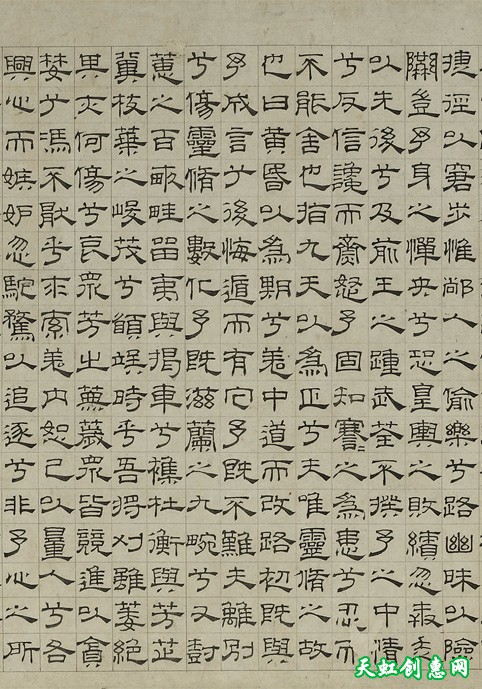 捷徑以窘步惟䣊人之偷樂兮路幽昧以險
隘豈予身之憚央兮恐皇輿之敗績忽奔走
以先後兮及前王之踵武荃不揆予之中情
兮反信讒而齌怒予固知謇〻之為患兮忍而
不能舍也指九天以為正兮夫唯靈脩之故
也曰黃昏以為期兮羌中道而改路初既與
予成言兮後悔遁而有它予既不難夫離別
兮傷靈脩之數化予既滋蘭之九畹兮又樹
蕙之百畝畦留夷與揭車兮雜杜衡與芳芷
冀枝葉之峻茂兮願竢時乎吾將刈雖萎絕
其亦何傷兮哀眾芳之蕪穢眾皆競進以貪
婪兮馮不猒乎求索羌內恕己以量人兮各
興心而嫉妒忽駝騖以追逐兮非予心之所
天虹创惠网